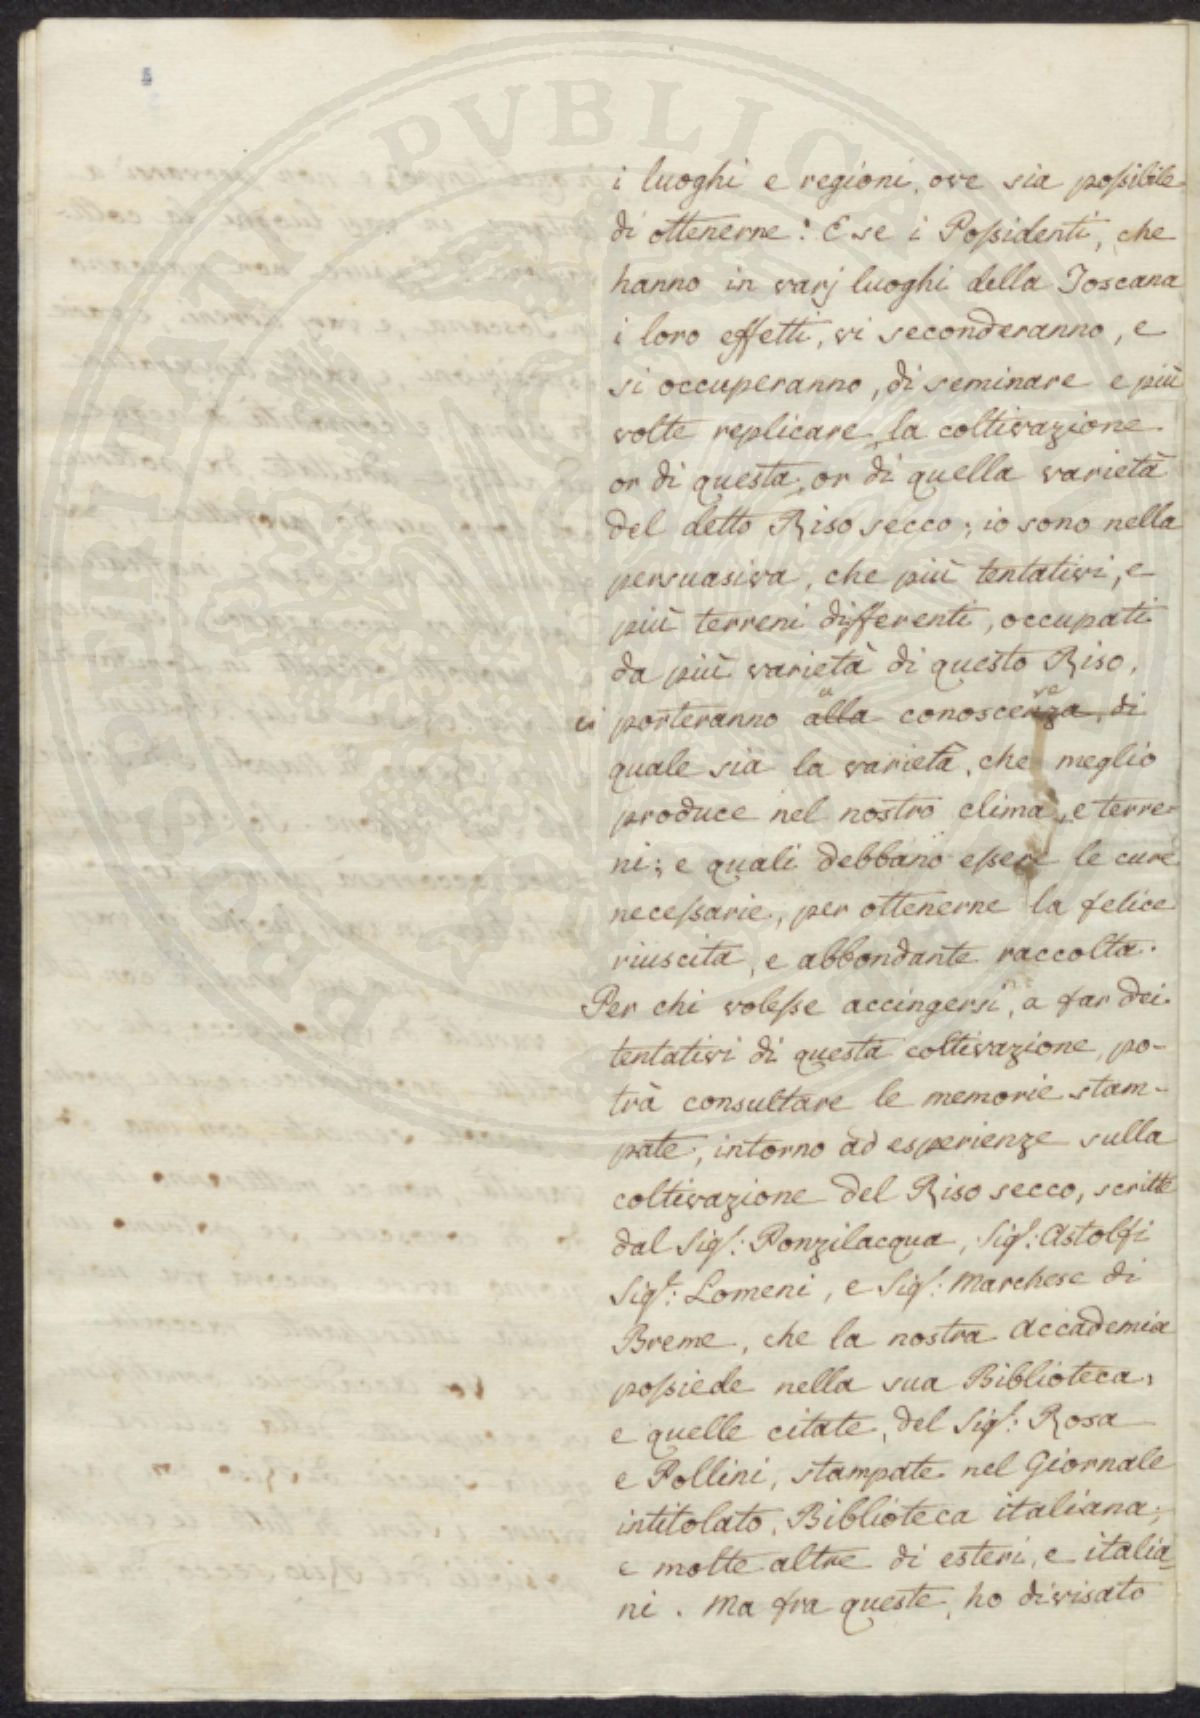 i luoghi e regioni, ove sia possibile
di ottenerne: E se i Possidenti, che
hanno in varj luoghi della Toscana
i loro effetti, vi seconderanno, e
si occuperanno, di seminare e più
volte replicare, la coltivazione
or di questa, or di quella varietà
del detto Riso secco; io sono nella
persuasiva, che più tentativi, e
più terreni differenti, occupati
da più varietà di questo Riso,
ci porteranno alla a conoscenza, di re
quale sia la varietà, che meglio
produce nel nostro clima, e terre-
ni; e quali debbano essere le cure
necessarie, per ottenerne la felice
riuscita, e abbondante raccolta.
Per chi volesse accingersi, a far dei
tentativi di questa coltivazione, po-
trà consultare le memorie stam-
pate, intorno ad esperienze sulla
coltivazione del Riso secco, scritte
dal Sigr: Ponzilacqua, Sigr: Astolfi
Sigr: Lomeni, e Sigr: Marchese di
Breme, che la nostra Accademia
possiede nella sua Biblioteca,
e quelle citate, del Sigr: Rosa
e Pollini, stampate nel Giornale
intitolato, Biblioteca italiana;
e molte altre di esteri, e italia-
ni. Ma fra queste, ho divisato
PVBLICA